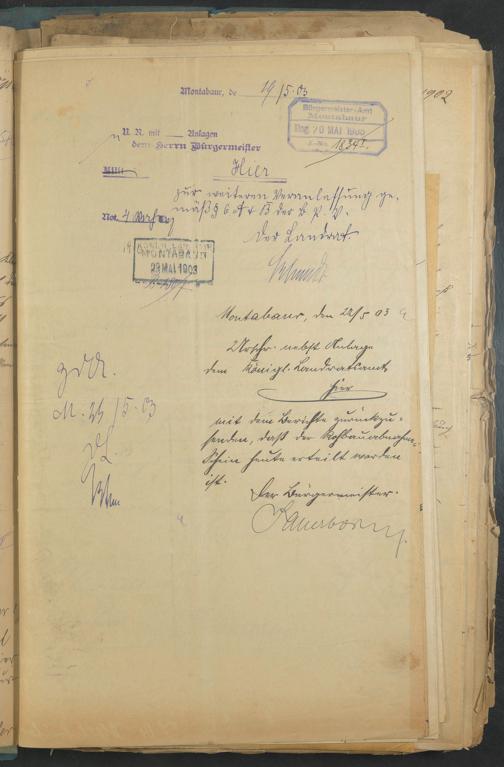 Montabaur, de 19/5.03
Bürgermeister-Amt
Montabaur
Eing. 20 MAI 1903
J.-No. 1834
U. R. mit ___ Anlagen
dem Herrn Bürgermeister
Hier
zur weiteren Veranlassung ge-
mäß § 6 der B. P. V.
Der Landrat
Schmidt
MONTABAUR
23 MAI 1903
Montabaur, den 22/5 03
Urschr. nebst Anlage
dem Königl. Landratsamt
hier
mit dem Berichte zurückzu-
senden, daß der Rohbauabnahme-
schein heute erteilt worden
ist.
Der Bürgermeister.
Sauerborn
M. 23/5.03
1902